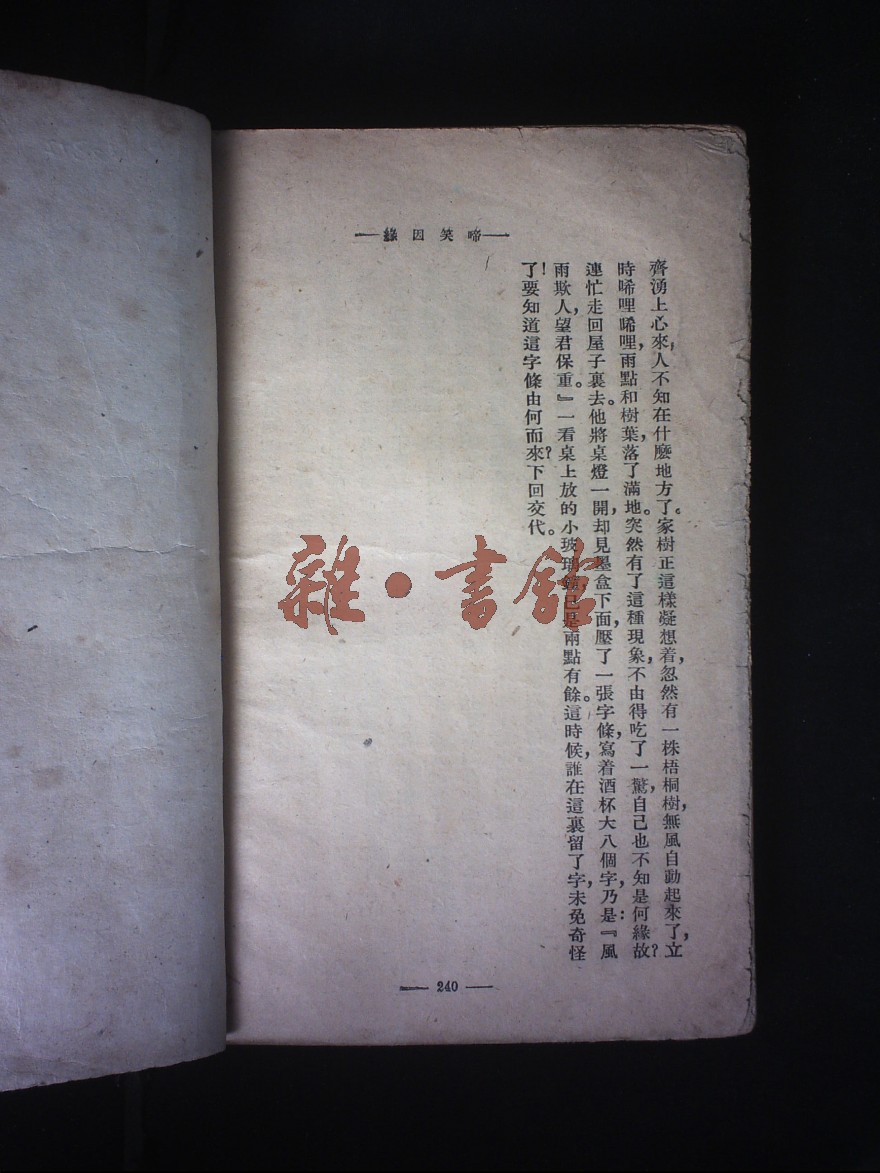 啼笑因緣
齊湧上心來，人不知在什麼地方了。家樹正這樣凝想着，忽然有一株梧桐樹，無風自動起來了，立
時唏哩唏哩，雨點和樹葉，落了滿地。突然有了這種現象，不由得吃了一驚，自己也不知是何緣故？
連忙走回屋子裏去。他將桌燈一開，却見墨盒下面，壓了一張字條，寫着酒杯大八個字，乃是：『風
雨欺人，望君保重。』一看桌上放的小玻璃鐘，已是兩點有餘。這時候，誰在這裏留了字，未免奇怪
了！要知道這字條由何而來？下回交代。
240
雜·書館